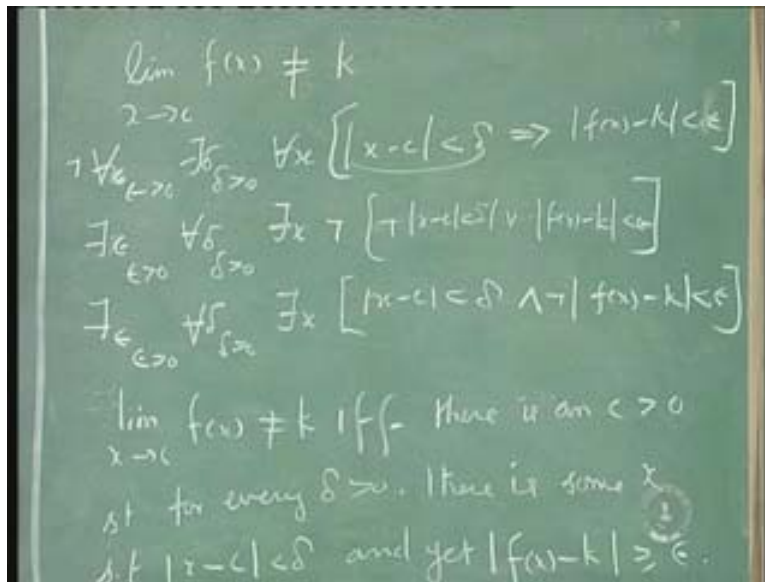 lim f(x) ≠ k
x→c
¬∀ϵ ϵ>0 ∃δ δ>0 ∀x [|x-c|<δ ⇒ |f(x)-k|<ϵ]
∃ϵ ϵ>0 ∀δ δ>0 ∃x ¬ [¬|x-c|<δ ∨ |f(x)-k|<ϵ]
∃ϵ ϵ>0 ∀δ δ>0 ∃x [|x-c|<δ ∧ ¬|f(x)-k|<ϵ]
lim f(x) ≠ k iff there is an ϵ > 0
x→c
st for every δ>0. there is some x
s.t |x-c|<δ and yet |f(x)-k| ≥ ϵ.